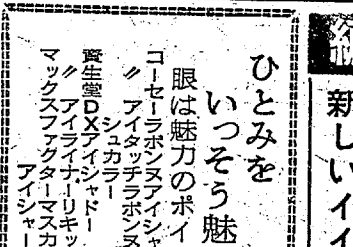 新しいイイ
ひとみを
いっそう魅
眼は魅力のポイ
コーセーラボンヌアイシャ
〃 アイタッチラボンヌ
シュカラー
資生堂DXアイシャドー
〃 アイライナーリキッ
マックスファクターマスカ
アイシャー